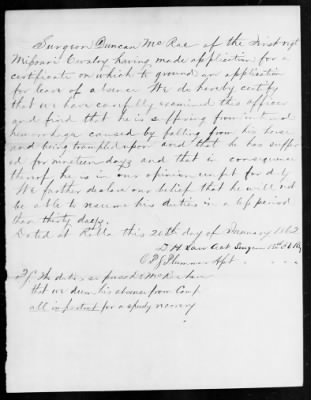 Surgeon Duncan McRae of the First regt
Missouri Cavalry having made application for a
certificate on which to ground an application
for leave of absence We do hereby certify
that we have carefully examined this officer
and find that he is suffering from internal
hemorrhage caused by falling from his horse
and being trampled upon and that he has suffer
ed for nineteen days and that in consequence
thereof he is in our opinion unfit for duty
We farther declare our belief that he will not
be able to resume his duties in a less period
than thirty days.
Dated at Rolla this 20th day of January 1862
D. H. Law Act Surgeon
Plummer
P.S. The duties
that we deem his absence from Camp
all important for a speedy recovery